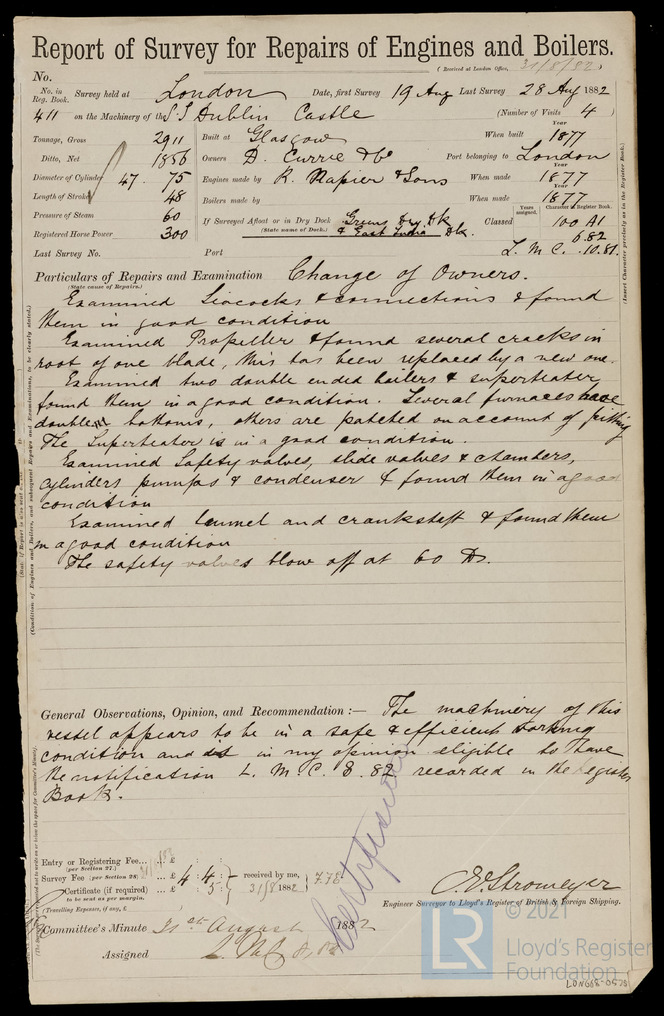 Report of Survey for Repairs of Engines and Boilers.
(Received at London Office, 31/8/82)
No.
No. in Reg. Book. Survey held at London Date, first Survey 19 Aug Last Survey 28 Aug 1882
411 on the Machinery of the S.S Dublin Castle (Number of Visits 4)
Tonnage, Gross 2911 Built at Glasgow When built Year 1877
Ditto, Net 1856 Owners D. Currie & Co Port belonging to London
Diameter of Cylinder 47 . 75 Engines made by R. Napier & Sons When made Year 1877
Length of Stroke 48 Boilers made by When made Year 1877
Pressure of Steam 60 If Surveyed Afloat or in Dry Dock Greens Dry Dk Classed Years assigned. Character in Register Book. 100 A1
Registered Horse Power 300 (State name of Dock.) & East India Dk. 6.82
Last Survey No. Port L. M. C. 10.81.
(Insert Character precisely as in the Register Book.)
Particulars of Repairs and Examination Change of Owners.
(State cause of Repairs.)
Examined Seacocks & connections & found
them in good condition
Examined Propeller & found several cracks in
root of one blade, this has been replaced by a new one.
Examined two double ended boilers & superheater,
found them in a good condition. Several furnaces have
doubled bottoms, others are patched on account of pitting
The Superheater is in a good condition.
Examined Safety valves, slide valves & chambers,
cylinders pumps & condenser & found them in a good
condition
Examined tunnel and crankshaft & found them
in a good condition
The safety valves blow off at 60 lbs.
General Observations, Opinion, and Recommendation:— The machinery of this
vessel appears to be in a safe & efficient working
condition and is in my opinion eligible to have
the notification L. M. C. 8. 82 recorded in the Register
Book.
Entry or Registering Fee... ... £ : :
(per Section 27.)
Survey Fee (per Section 28) ... £ 4 : 4 : received by me,
Certificate (if required) ... £ : 5 : 31/8 1882
to be sent as per margin.
(Travelling Expenses, if any, £ )
C.E. Stromeyer
Engineer Surveyor to Lloyd's Register of British & Foreign Shipping.
Certificate
Committee's Minute 31st August 1882
Assigned
© 2021
LR
Lloyd's Register
Foundation